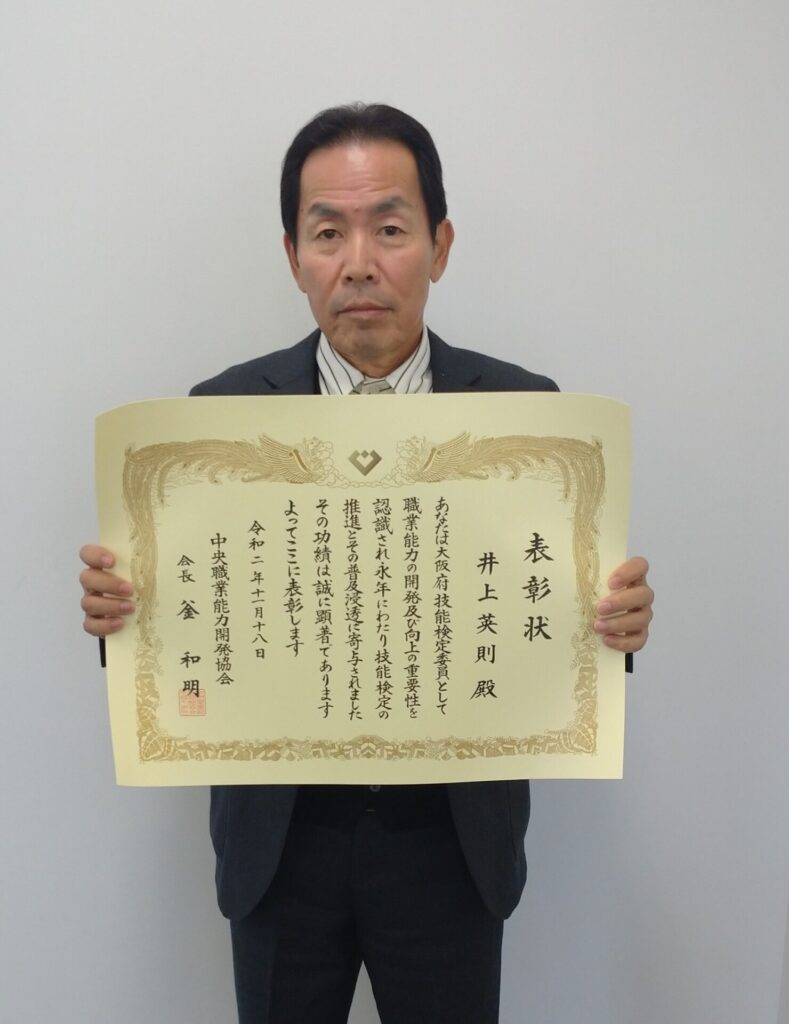 表彰状
井上英則殿
あなたは大阪府技能検定委員として
職業能力の開発及び向上の重要性を
認識され永年にわたり技能検定の
推進とその普及浸透に寄与されました
その功績は誠に顕著であります
よってここに表彰します
令和二年十一月十八日
中央職業能力開発協会
会長 釜和明